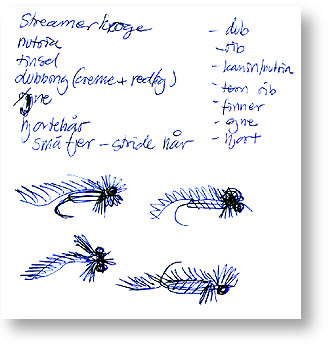 Streamerkroge
nutria
tinsel
dubbing (creme + red fg)
øjne
hjortehår
små fjer - stride hår
- dub
- rib
- kanin/nutria
- tern rib
- finner
- øjne
- hjort